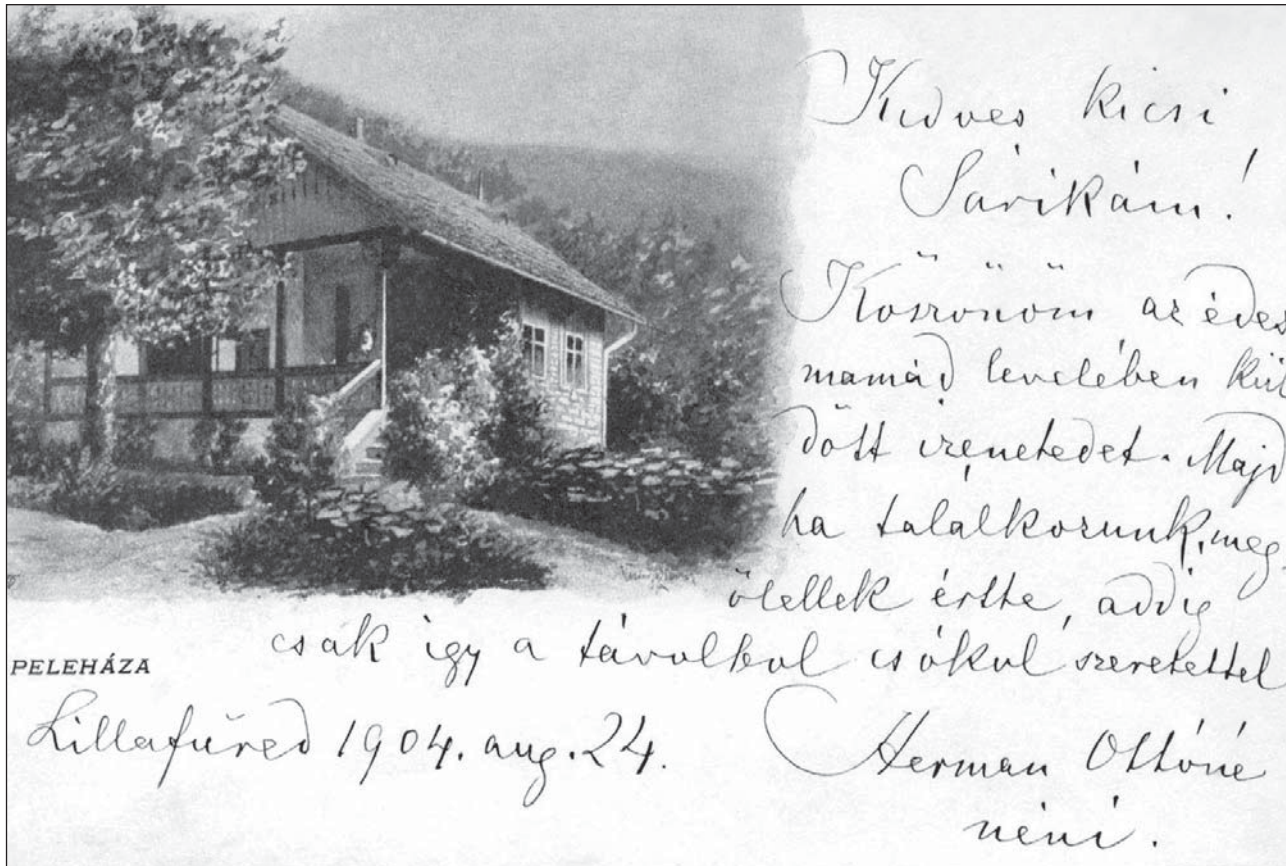 Kedves kicsi
Sárikám!
Köszönöm az édes
mamád levelében kül
dött izenetedet. Majd
ha talalkozunk, meg-
ölellek érte, addig
csak igy a távolbol csókol szeretettel
PELEHÁZA
Lillafüred 1904. aug. 24.
Herman Ottóné
néni.